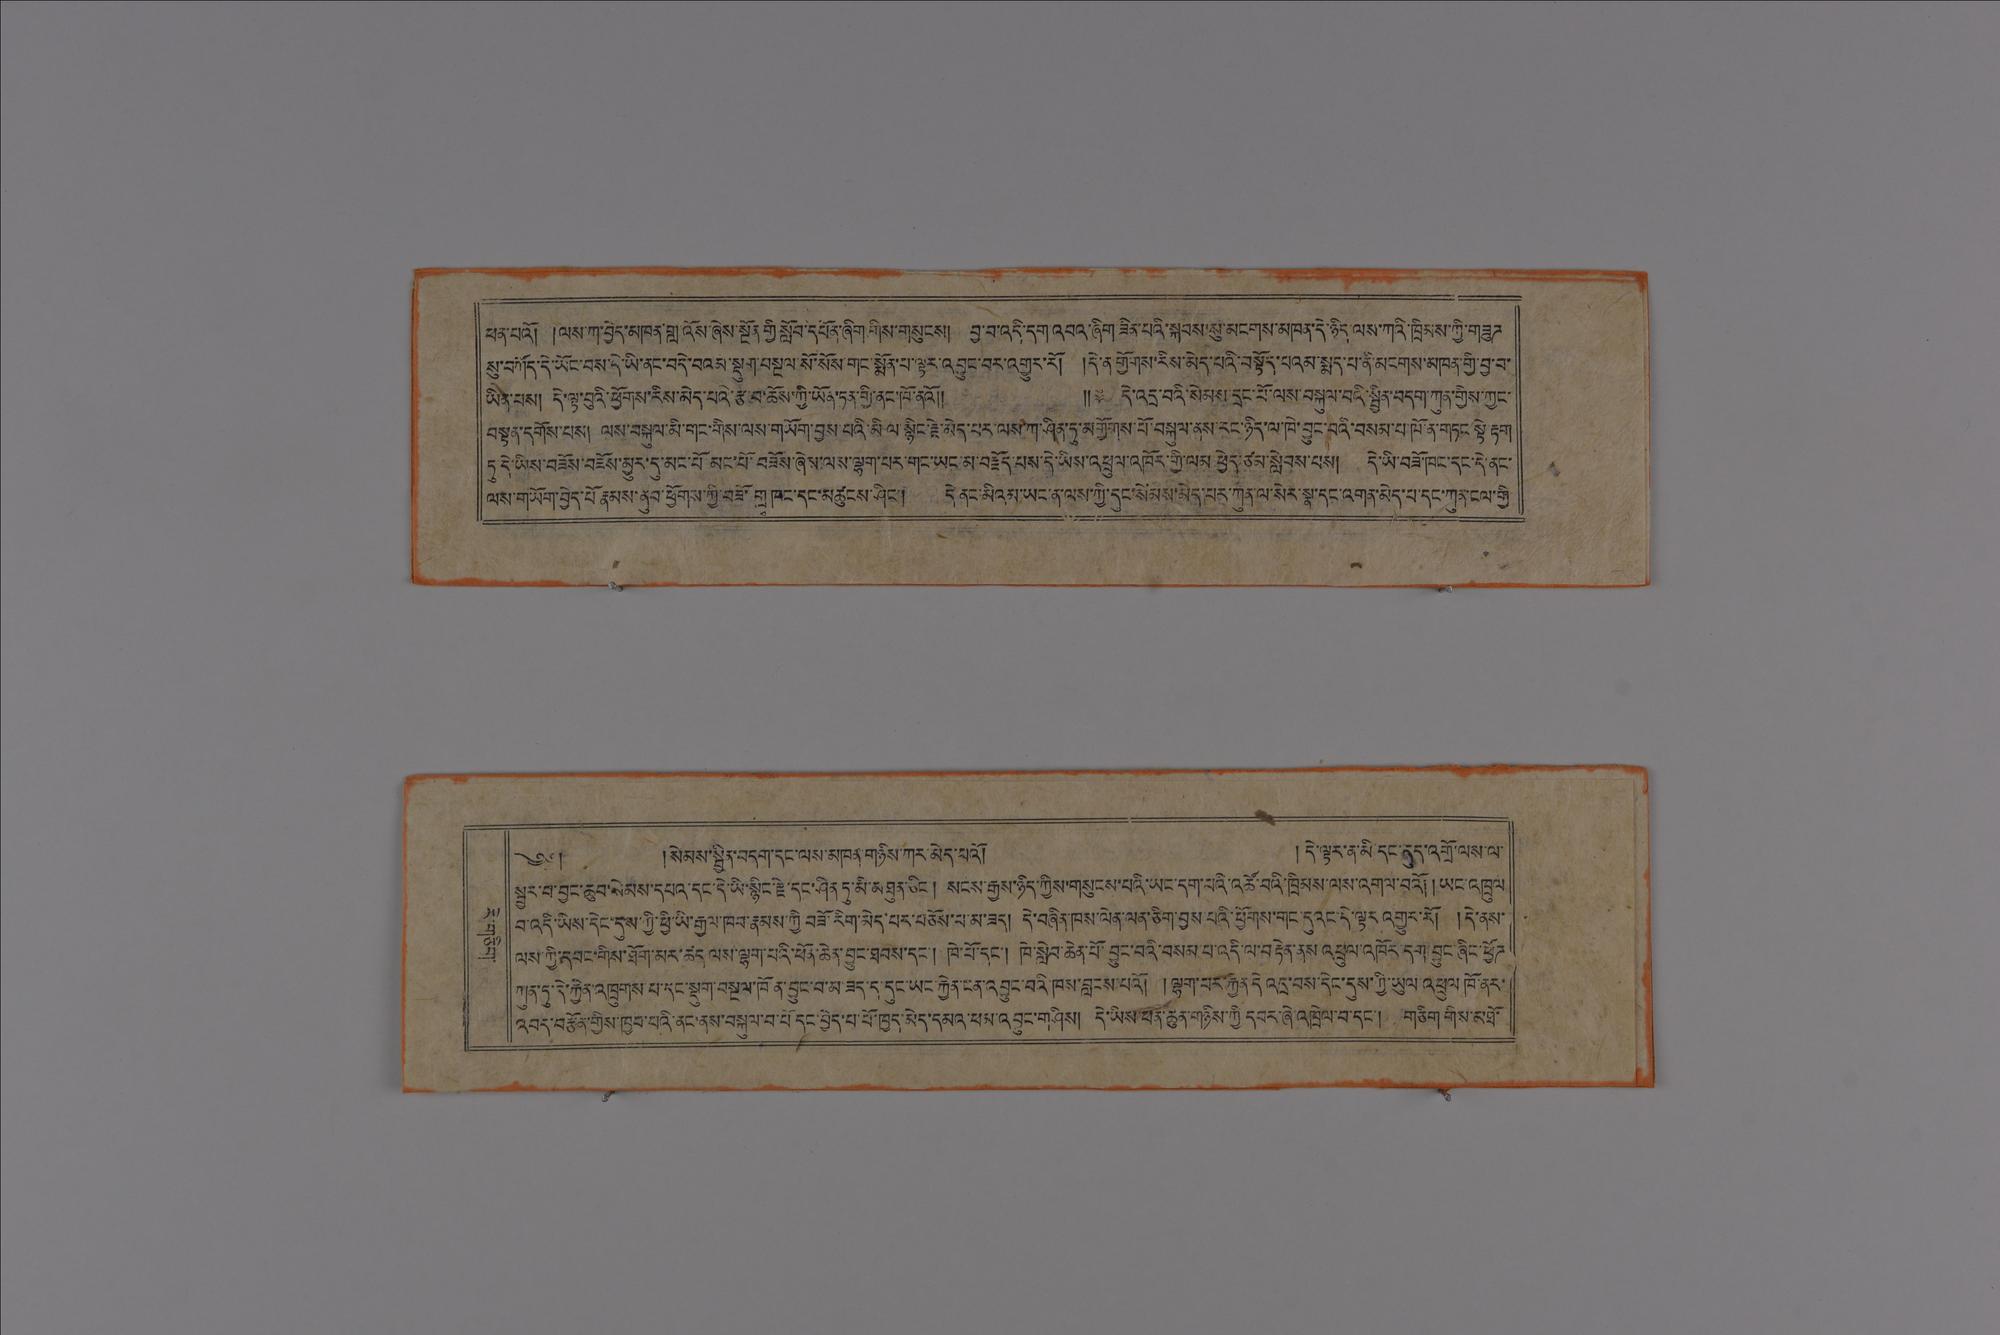 ཕན་པའོ། །ལས་ཀ་བྱེད་མཁན་བླ་འོས་ཞེས་སྔོན་གྱི་སློབ་དཔོན་ཞིག་གིས་གསུངས། བྱ་བ་འདི་དག་འབའ་ཞིག་ཟིན་པའི་སྐབས་སུ་མངགས་མཁན་དེ་ཉིད་ལས་ཀའི་ཁྲིམས་ཀྱི་གཟུཊ
སུ་བཀོད་དེ་ཡོང་བས་དེ་ཡི་ནང་བདེ་བའམ་སྡུག་བསྔལ་སོ་སོས་གང་སྨོན་པ་ལྟར་འབྱུང་བར་འགྱུར་རོ། །དེ་ན་ཕྱོགས་རིས་མེད་པའི་བསྟོད་པའམ་སྨད་པ་ནི་མངགས་མཁན་གྱི་བྱ་བ་
ཡིན་པས། དེ་ལྟ་བུའི་ཕྱོགས་རིས་མེད་པའི་རྩ་བ་ཆོས་ཀྱི་ཡོན་ཏན་གྱི་ནང་ཁོ་ནའོ།། །།༔ དེ་འདྲ་བའི་སེམས་དྲང་པོ་ལས་བསྐུལ་བའི་སྦྱིན་བདག་ཀུན་གྱིས་ཀྱང་
བསྟན་དགོས་པས། ལས་བསྐུལ་མི་གང་གིས་ལས་གཡོག་བྱས་པའི་མི་ལ་སྙིང་རྗེ་མེད་པར་ལས་ཀ་ཤིན་ཏུ་མགྱོགས་པོ་བསྐུལ་ནས་རང་ཉིད་ལ་ཁེ་བྱུང་བའི་བསམ་པ་ཁོ་ན་གཏང་སྟེ་རྟག
ཏུ་དེ་ཡིས་བཟོས་བཟོས་མྱུར་དུ་མང་པོ་མང་པོ་བཟོས་ཞེས་ལས་ལྷག་པར་གང་ཡང་མ་བརྗོད་པས་དེ་ཡིས་འཕྲུལ་འཁོར་གྱི་ལམ་ཕྱེད་ཙམ་སླེབས་པས། དེ་ཡི་བཟོ་ཁང་དང་དེ་ནང་
ལས་གཡོག་བྱེད་པོ་རྣམས་ནུབ་ཕྱོགས་ཀྱི་བཟོ་གྲྭ་ཁང་དང་མཚུངས་ཤིང་། དེ་ནང་མིའམ་ཡང་ན་ལས་ཀྱི་དྲང་སེམས་མེད་པར་ཀུན་ལ་སེར་སྣ་དང་འགན་མེད་པ་དང་ཀུན་ངལ་གྱི
༄༅། །སེམས་སྦྱིན་བདག་དང་ལས་མཁན་གཉིས་ཀར་མེད་པའོ། །དེ་ལྟར་ན་མི་དང་དུད་འགྲོ་ལས་ལ་
སྦྱར་བ་བྱང་ཆུབ་སེམས་དཔའ་དང་དེ་ཡི་སྙིང་རྗེ་དང་ཤིན་ཏུ་མི་མཐུན་ཅིང་། སངས་རྒྱས་ཉིད་ཀྱིས་གསུངས་པའི་ཡང་དག་པའི་འཚོ་བའི་ཁྲིམས་ལས་འགལ་བའོ། །ཡང་འཁྲུལ
བ་འདི་ཡིས་དེང་དུས་ཀྱི་ཕྱི་ཡི་རྒྱལ་ཁབ་རྣམས་ཀྱི་བཟོ་རིག་མེད་པར་བཅོས་པ་མ་ཟད། དེ་བཞིན་ཁས་ལེན་ལན་ཅིག་བྱས་པའི་ཕྱོགས་གང་དུའང་དེ་ལྟར་འགྱུར་རོ། །དེ་ནས་
ལས་ཀྱི་དབང་གིས་ཐོག་མར་ཚད་ལས་ལྷག་པའི་ཕོན་ཆེན་བྱུང་ཐབས་དང་། ཁེ་པོ་དང་། ཁེ་སླེབ་ཆེན་པོ་བྱུང་བའི་བསམ་པ་འདི་ལ་བརྟེན་ནས་འཕྲུལ་འཁོར་དག་བྱུང་ཞིང་ཕྱོཊ
ཀུན་ཏུ་དེ་རྐྱེན་འཁྲུགས་པ་དང་སྡུག་བསྔལ་ཁོ་ན་བྱུང་བ་མ་ཟད་ད་དུང་ཡང་རྐྱེན་ངན་འབྱུང་བའི་ཁས་བླངས་པའོ། །ལྷག་པར་རྐྱེན་དེ་འདྲ་བས་དེང་དུས་ཀྱི་ཡུལ་འཕྲུལ་ཁོ་ནར་
འབད་བརྩོན་གྱིས་ཁྱབ་པའི་ནང་ནས་བསྐུལ་བ་པོ་དང་བྱེད་པ་པོ་ཁྱད་མེད་དམའ་ཕམ་འབྱུང་གཤིས། དེ་ཡིས་ཕན་ཚུན་གཉིས་ཀྱི་དབར་ཞེ་འཁྲེལ་བ་དང་། གཅིག་གིས་མ་ཐོ་